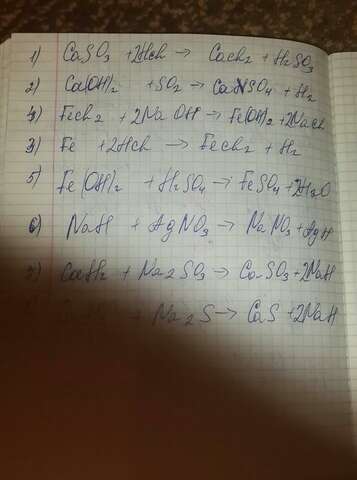 1) CaSO₃ + 2HCl → CaCl₂ + H₂SO₃
2) Ca(OH)₂ + SO₂ → CaSO₄ + H₂
4) FeCl₂ + 2NaOH → Fe(OH)₂ + 2NaCl
3) Fe + 2HCl → FeCl₂ + H₂
5) Fe(OH)₂ + H₂SO₄ → FeSO₄ + 2H₂O
6) NaH + AgNO₃ → NaNO₃ + AgH
CaH₂ + Na₂SO₃ → CaSO₃ + 2NaH
+ Na₂S → CaS + 2NaH